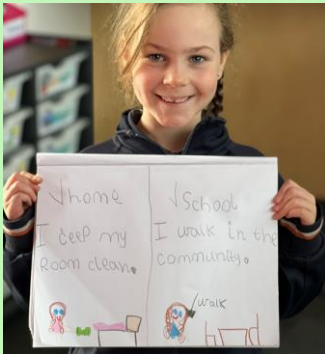 √home
I ceep my
Room clean.
√School
I walk in the
community.
walk